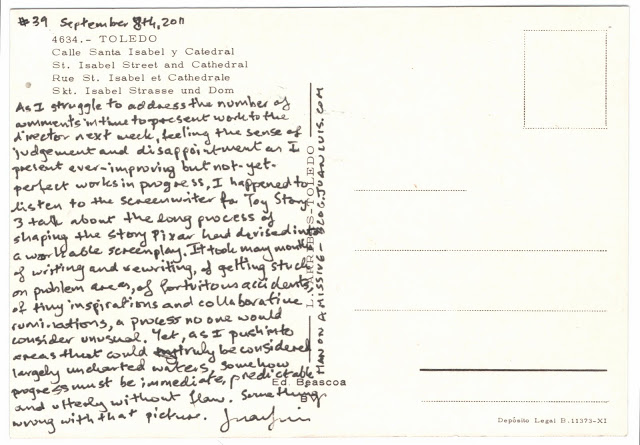 #39 September 8th, 2011
4634.- TOLEDO
Calle Santa Isabel y Catedral
St. Isabel Street and Cathedral
Rue St. Isabel et Cathedrale
Skt. Isabel Strasse und Dom
As I struggle to address the number of
comments in time to present work to the
director next week, feeling the sense of
judgement and disappointment as I
present ever-improving but not-yet-
perfect works in progress, I happened to
listen to the screenwriter for Toy Story
3 talk about the long process of
shaping the story Pixar had devised into
a workable screenplay. It took many months
of writing and rewriting, of getting stuck
on problem areas, of fortuitous accidents,
of tiny inspirations and collaborative
ruminations, a process no one would
consider unusual. Yet, as I push into
areas that could truly be considered
largely uncharted waters, somehow
progress must be immediate, predictable
and utterly without flaw. Something
wrong with that picture.
TOLEDO
MANONAMISSIVE-BLOG.JUANLUIS.COM
Ed. Beascoa
Depósito Legal B.11373-XI